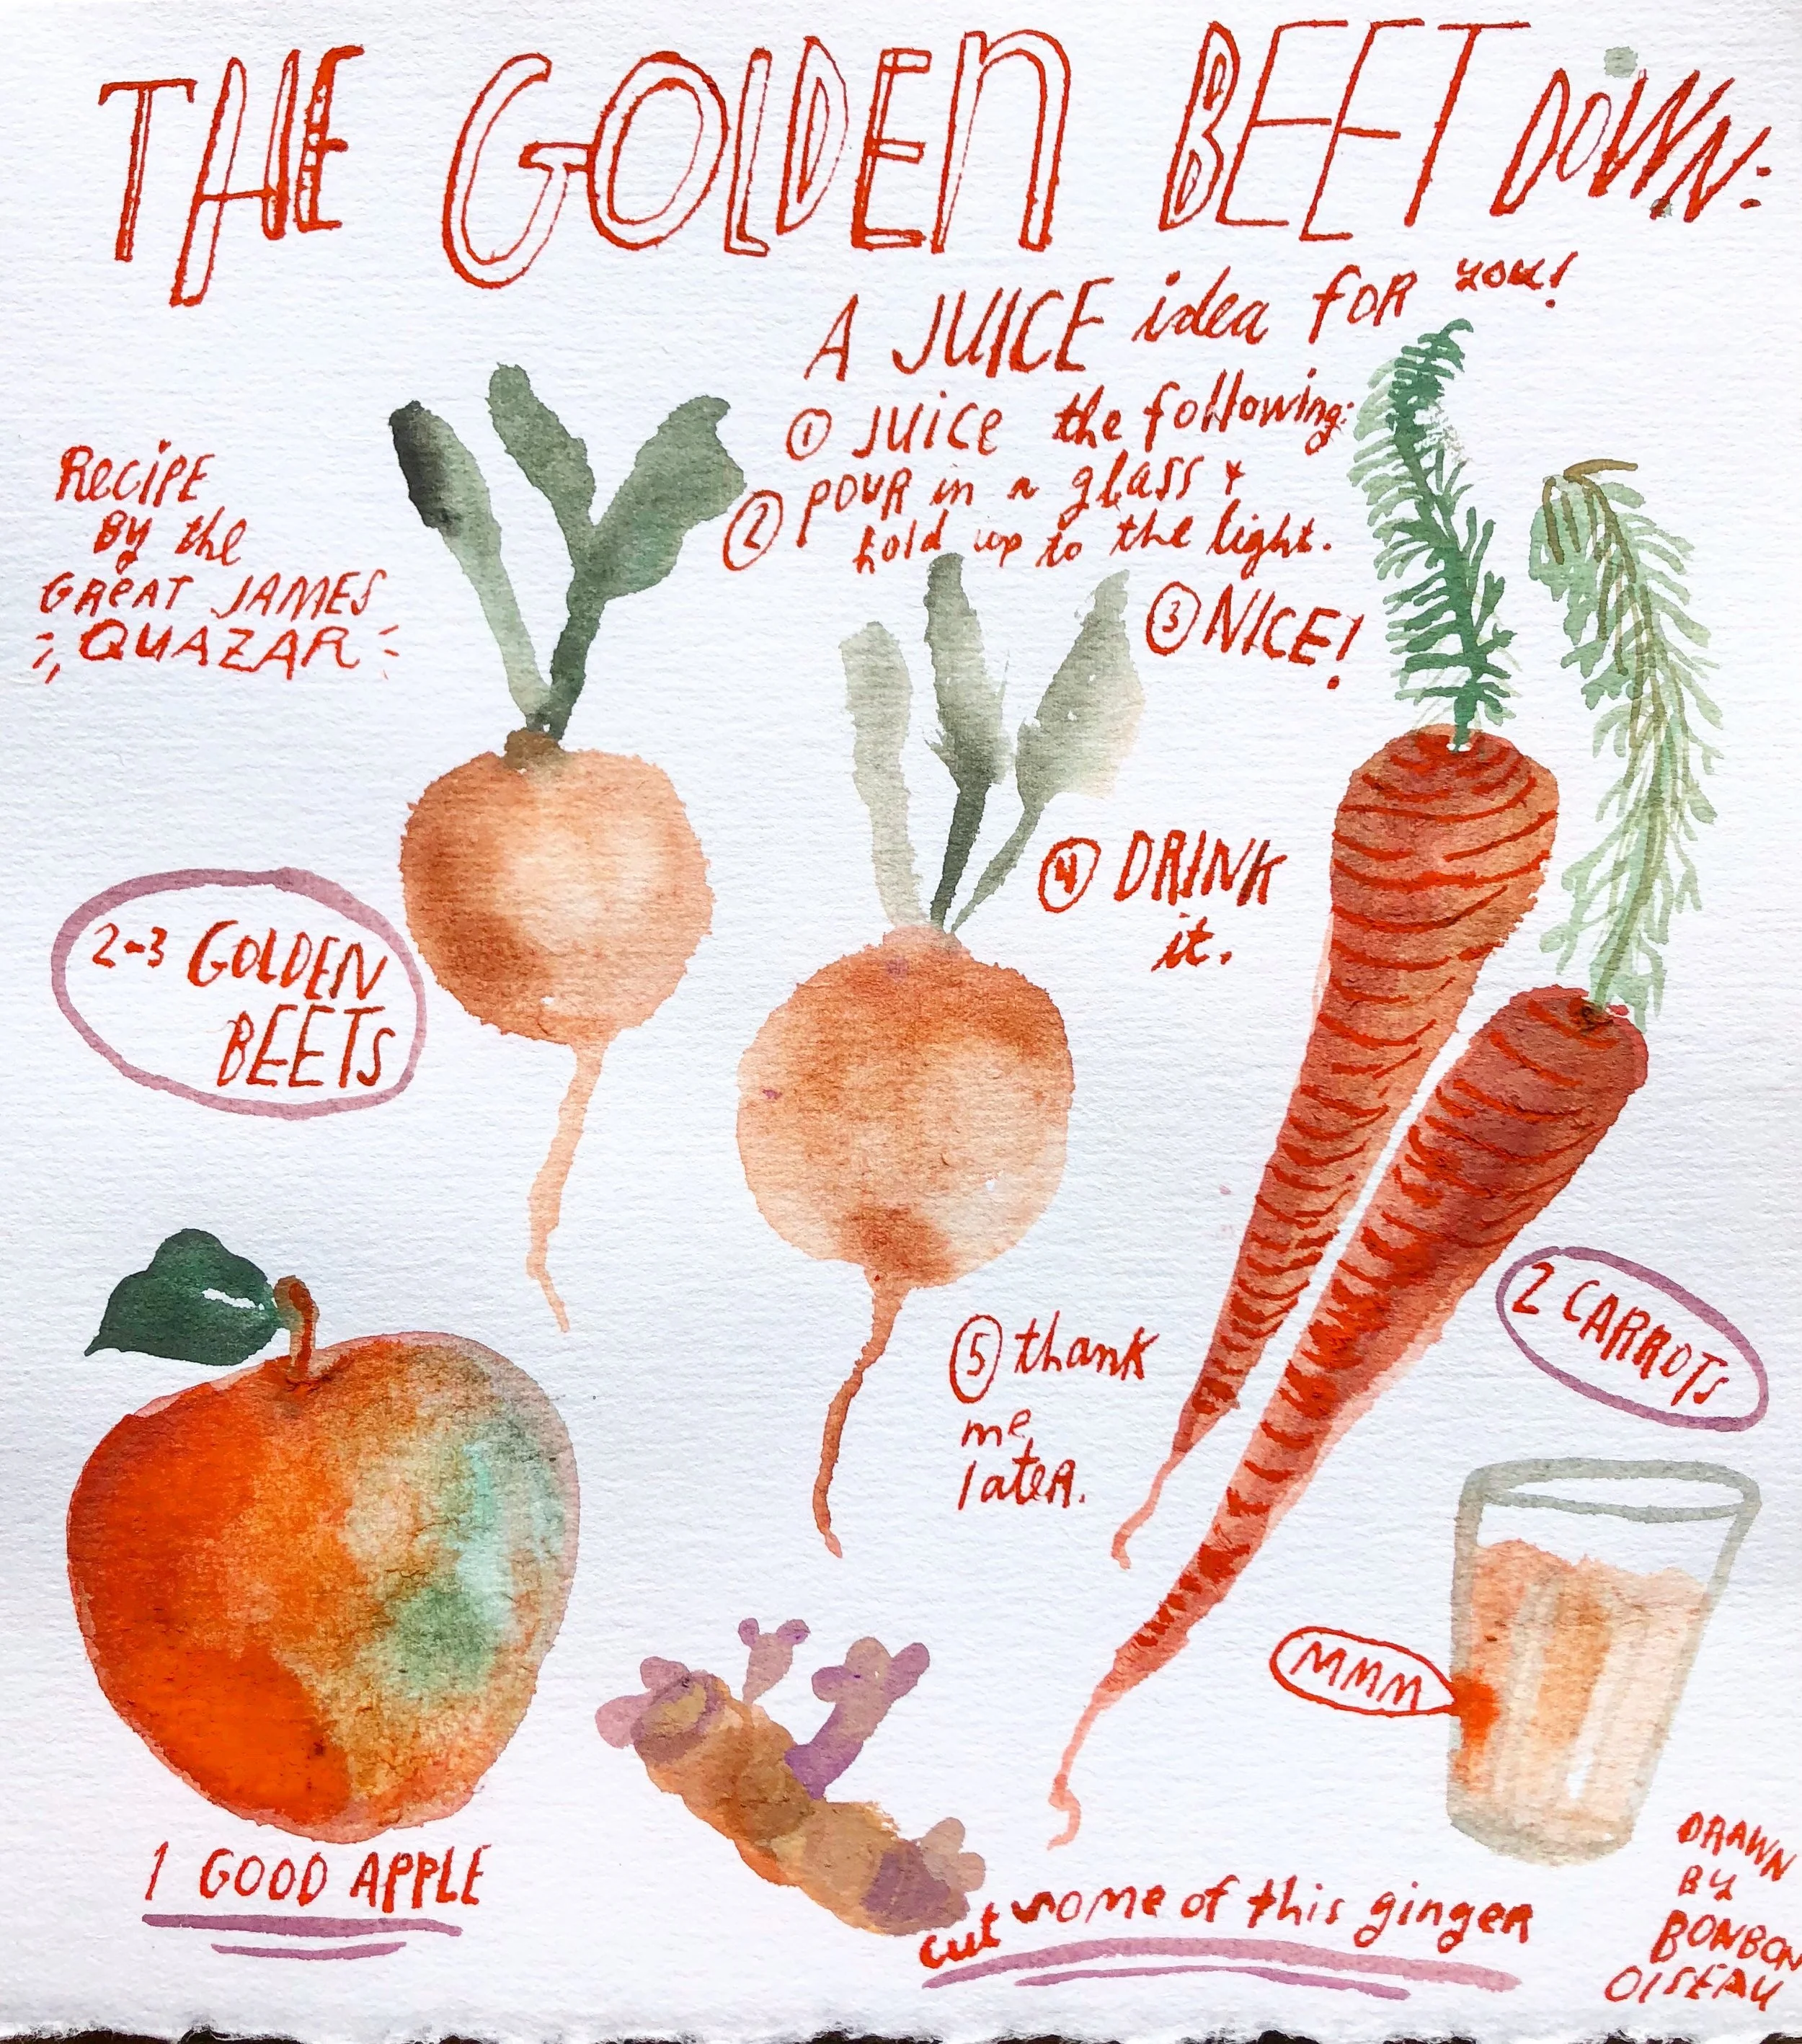 THE GOLDEN BEET DOWN:
A JUICE idea for you!
① JUICE the following:
② POUR in a glass +
hold up to the light.
③ NICE!
RECIPE
BY the
GREAT JAMES
QUAZAR
④ DRINK
it.
2-3 GOLDEN
BEETS
⑤ thank
me
later.
2 CARROTS
MMM
1 GOOD APPLE
cut some of this ginger
DRAWN
BY
BONBON
OISEAU